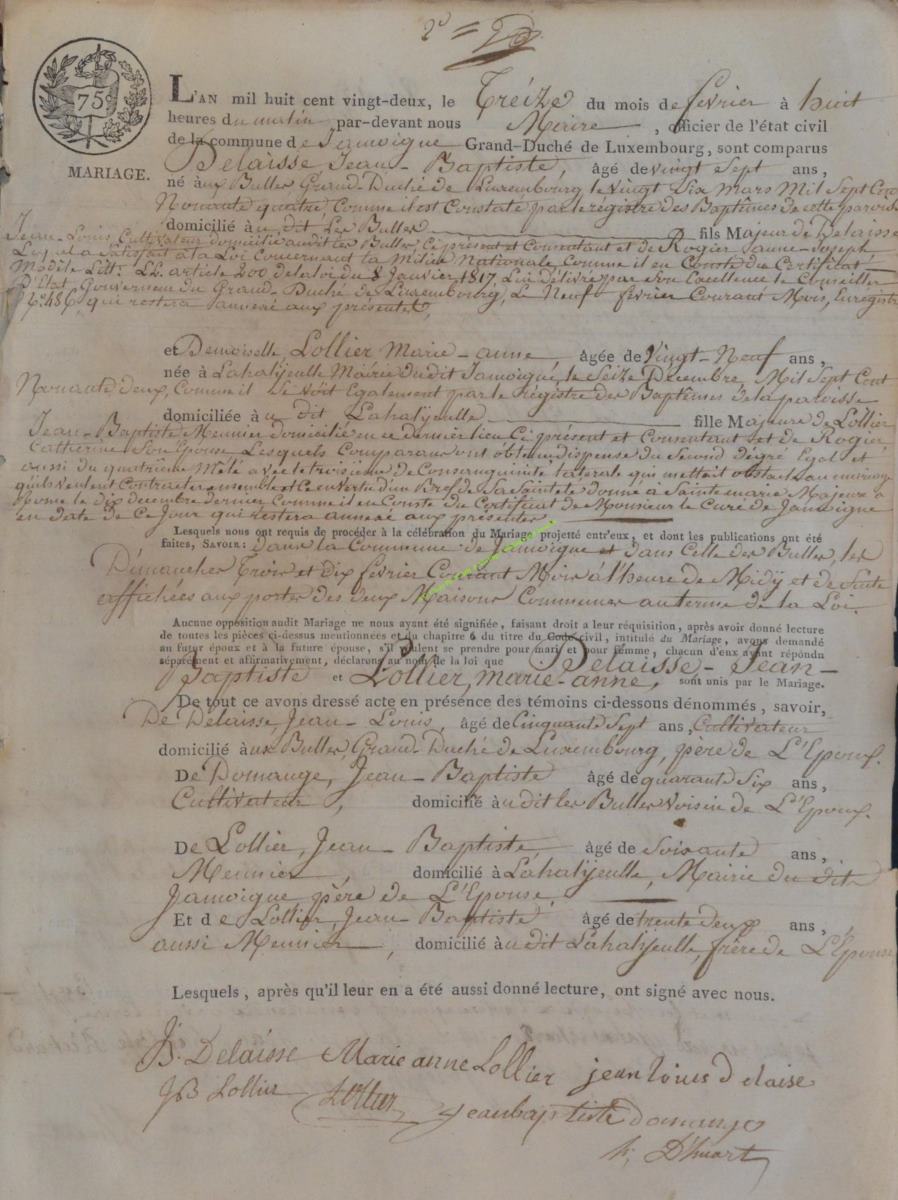 75
MARIAGE.
L'AN mil huit cent vingt-deux, le Treize du mois de fevrier à huit
heures du matin par-devant nous Maire, officier de l'état civil
de la commune de Jamoigne Grand-Duché de Luxembourg, sont comparus
Delaisse Jean-Baptiste, âgé de vingt Sept ans,
né aux Buller Grand-Duché de Luxembourg le vingt Six mars Mil Sept Cent
Nonante quatre Comme il est Constaté par le régistre des Baptêmes de cette paroisse
domicilié à u dit Les Buller fils Majeur de Delaisse
Jean-Louis, Cultivateur domicilié audit les Buller Ci présent et Consentant et de Rogier Jeanne-Joseph
Lequel a Satisfait à la Loi Concernant la Milice Nationale Comme il en Conste du Certificat
Modèle Litt: LL. article 200 de la loi du 8 Janvier 1817, Lui délivré par Son Excellence le Conseiller
D'Etat Gouverneur du Grand Duché de Luxembourg, Le Neuf fevrier Courant Mois, Enregistré
N.° 486, qui restera annexé aux présentes,
et Demoiselle Lollier Marie-anne, âgée de Vingt-Neuf ans,
née à Lahatyeulle Mairie du dit Jamoigne, le Seize Decembre, Mil Sept Cent
Nonante deux, Comme il Se voit Egalement par le registre des Baptêmes de la paroisse
domiciliée à u dit Lahatyeulle fille Majeure de Lollier
Jean-Baptiste Meunier domicilié en ce dernier lieu Ci présent et Consentant et de Rogier
Catherine Son Epouse Lesquels Comparans ont obtenu dispense du Second dégré Egal et
aussi du quatrieme Mêlé avec le troisieme de Consanguinité latérale qui mettait obstacle au
qu'ils veulent Contracter ensemble et Ce en vertu d'un Bref de Sa Sainteté donné a Sainte marie Majeure à
Rome le dix decembre dernier Comme il en Conste du Certificat de Monsieur le Curé de Jamoigne
en date de Ce Jour qui restera annexé aux présentes
Lesquels nous ont requis de procéder à la célébration du Mariage projetté entr'eux, et dont les publications ont été
faites, SAVOIR: dans la Commune de Jamoigne et dans Celle des Buller, les
Dimanches Trois et dix fevrier Courant Mois à l'heure de Midy et de Suite
affichées aux portes des deux Maisons Communes au terme de la Loi.
Aucune opposition audit Mariage ne nous ayant été signifiée, faisant droit a leur réquisition, après avoir donné lecture
de toutes les pièces ci-dessus mentionnées et du chapitre 6 du titre du Code civil, intitulé du Mariage, avons demandé
au futur époux et à la future épouse, s'il veulent se prendre pour mari et pour femme, chacun d'eux ayant répondu
séparément et affirmativement, déclarons au nom de la loi que Delaisse-Jean-
Baptiste et Lollier, marie-anne, sont unis par le Mariage.
De tout ce avons dressé acte en présence des témoins ci-dessous dénommés, savoir,
De Delaisse, Jean-Louis, âgé de Cinquante Sept ans, Cultivateur
domicilié à ux Buller Grand-Duché de Luxembourg, père de L'Epoux.
De Domange, Jean-Baptiste âgé de quarante Six ans,
Cultivateur, domicilié à u dit les Buller voisin de L'Epoux.
De Lollier, Jean-Baptiste âgé de Soixante ans,
Meunier, domicilié à Lahatyeulle, Mairie du dit
Jamoigne, père de L'Epouse,
Et de Lollier, Jean-Baptiste, âgé de trente deux ans,
aussi Meunier, domicilié à u dit Lahatyeulle, frère de L'Epouse
Lesquels, après qu'il leur en a été aussi donné lecture, ont signé avec nous.
JB. Delaisse Marie anne Lollier jean louis delaise
JB Lollier Lollier Jeanbaptiste domange
D'huart